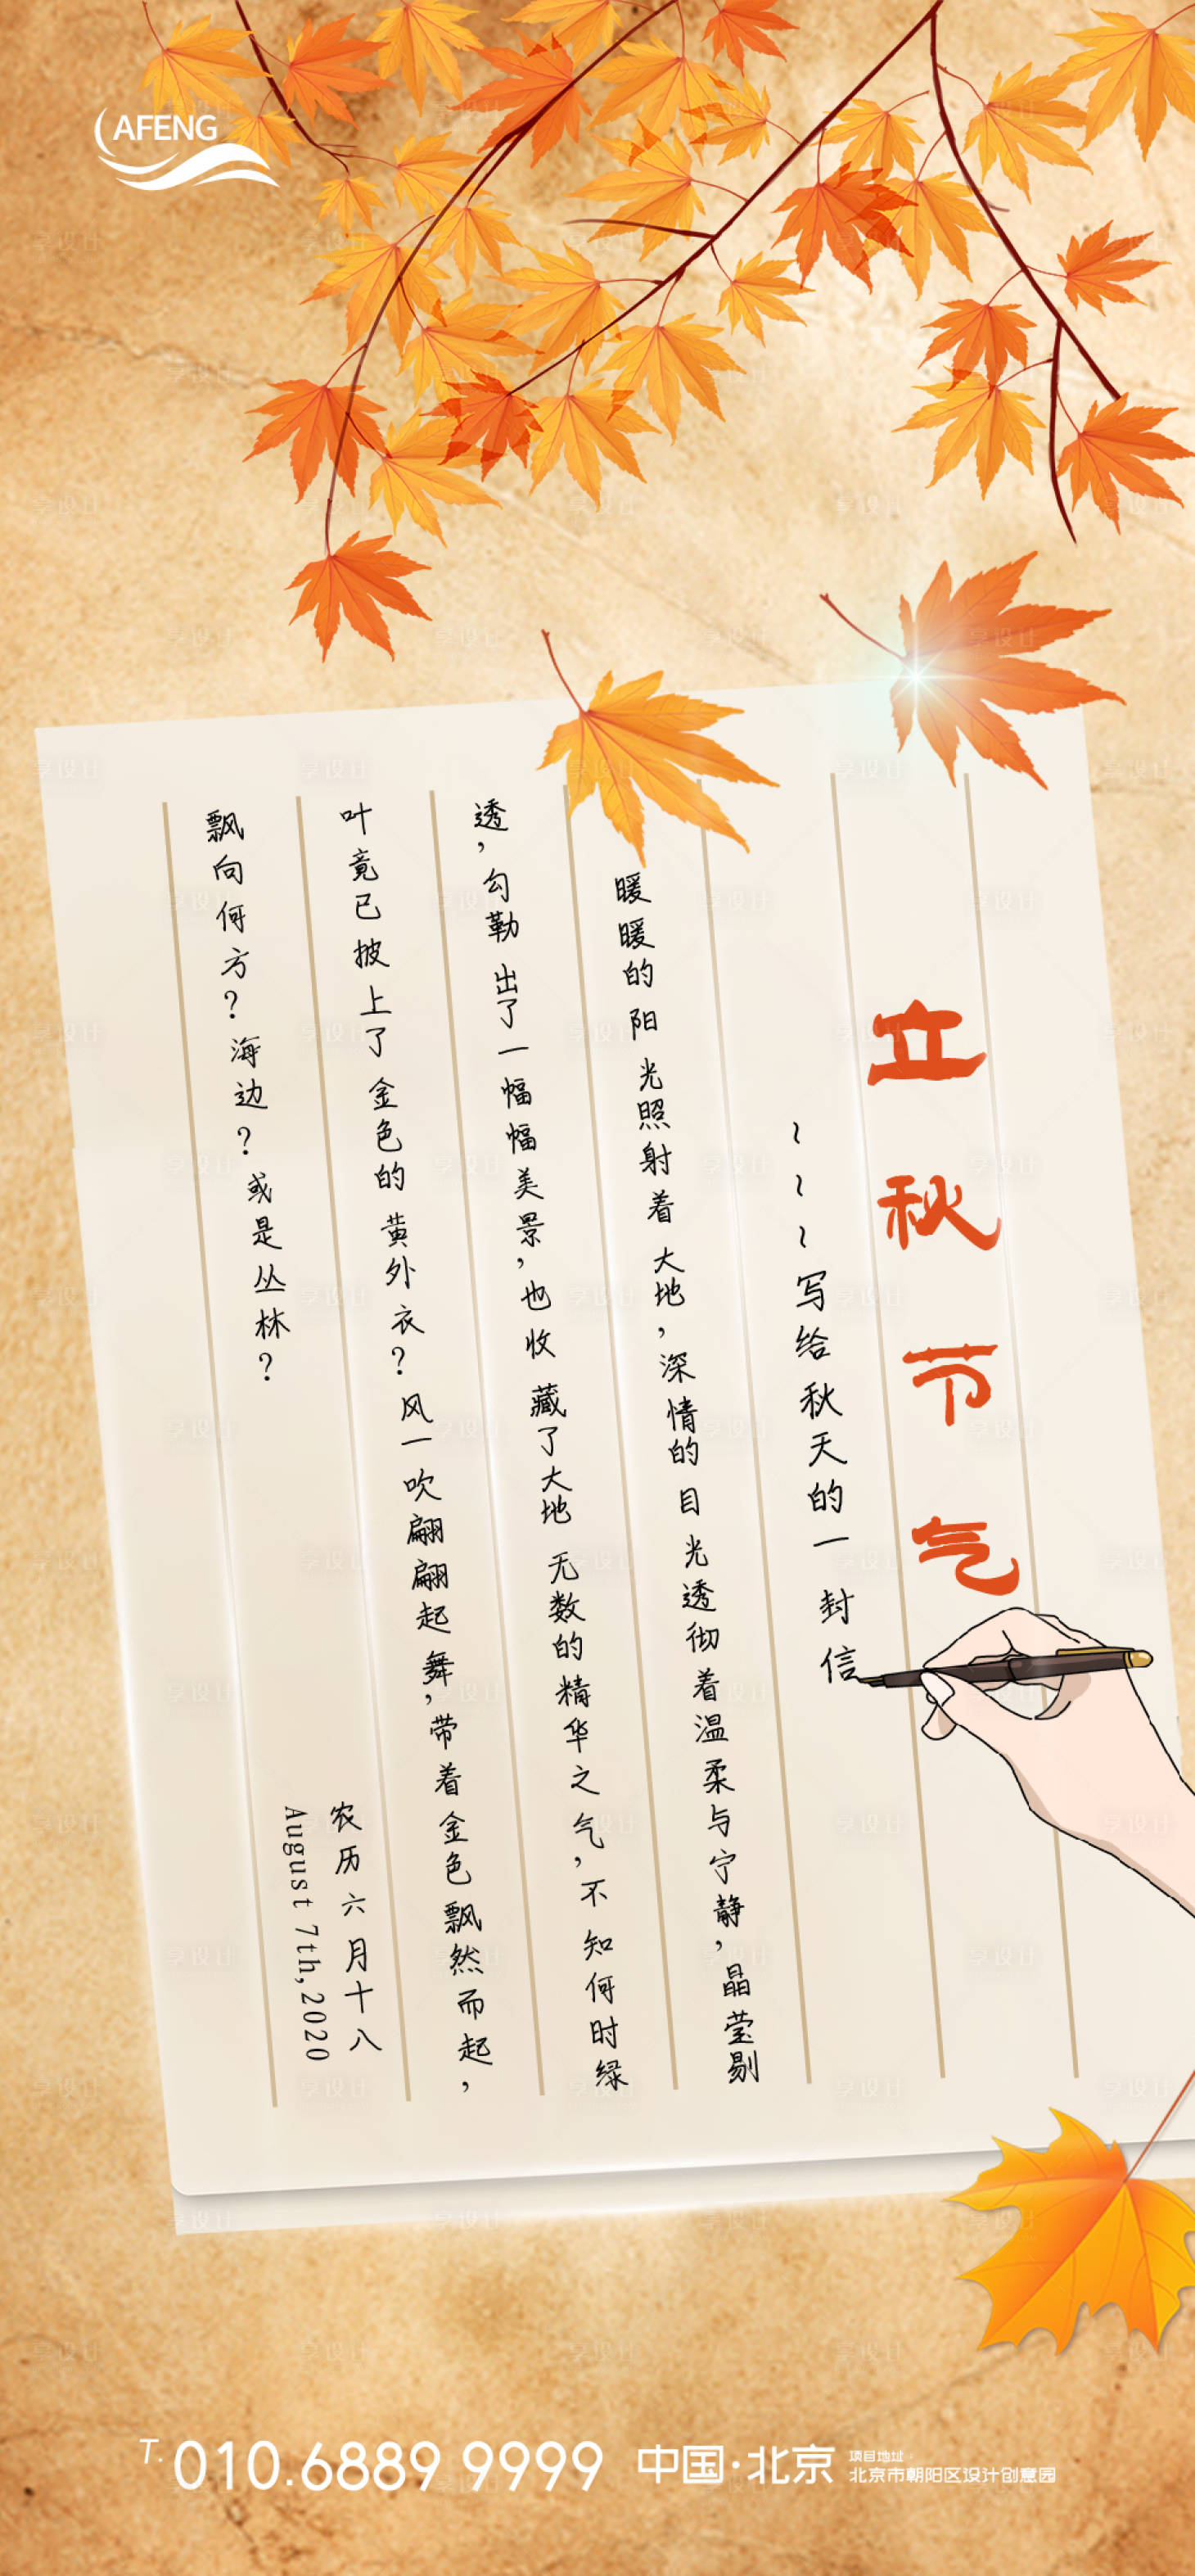 AFENG
立秋节气
~~~写给秋天的一封信
暖暖的阳光照射着大地,深情的目光透彻着温柔与宁静,晶莹剔
透,勾勒出了一幅幅美景,也收藏了大地无数的精华之气,不知何时绿
叶竟已披上了金色的黄外衣?风一吹翩翩起舞,带着金色飘然而起,
飘向何方?海边?或是丛林?
农历六月十八
August 7th,2020
T.010.6889 9999
中国·北京
项目地址·
北京市朝阳区设计创意园
享设计